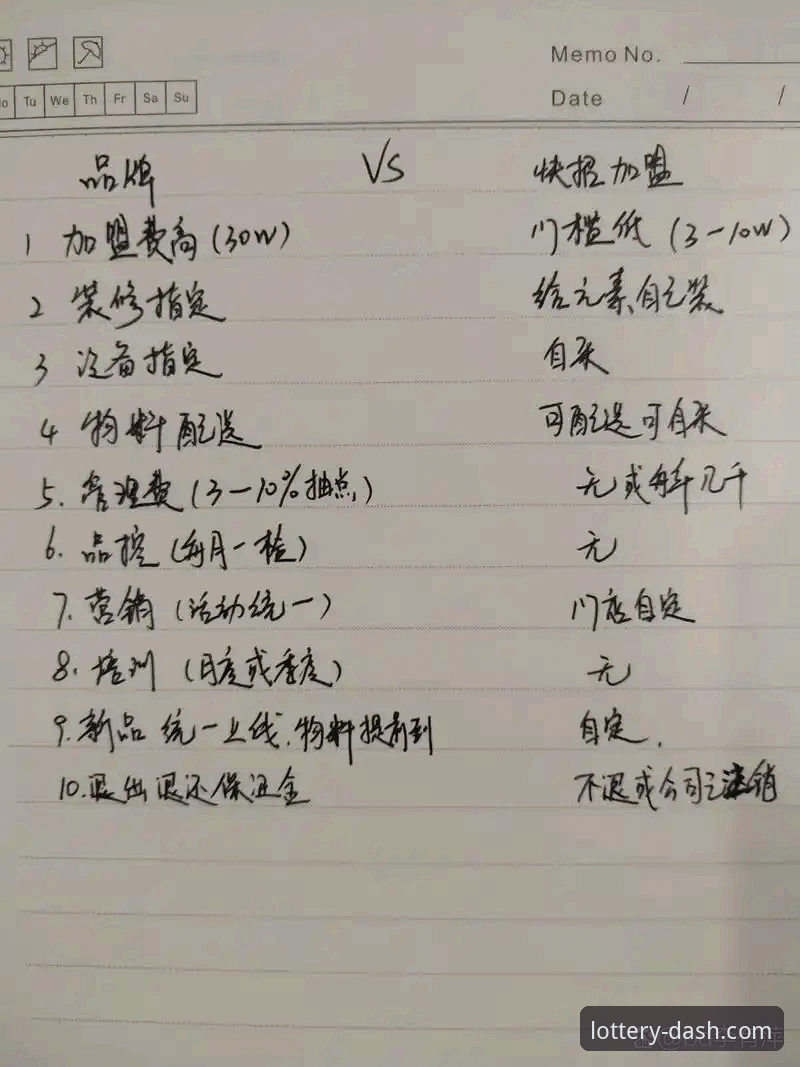 Memo No.
Tu We Th Fr Sa Su
Date / /
品牌 VS 快招加盟
1 加盟费高(30W) 门槛低(3-10W)
2 装修指定 给元素、自己装
3 设备指定 自采
4 物料配送 可配送可自采
5. 管理费(3-10%抽点) 无或每年几千
6. 品控(每月一检) 无
7. 营销(活动统一) 门店自定
8. 培训(月度或季度) 无
9. 新品统一上线.物料提前到 自定.
10. 退出退还保证金 不退或公司已注销
lottery-dash.com